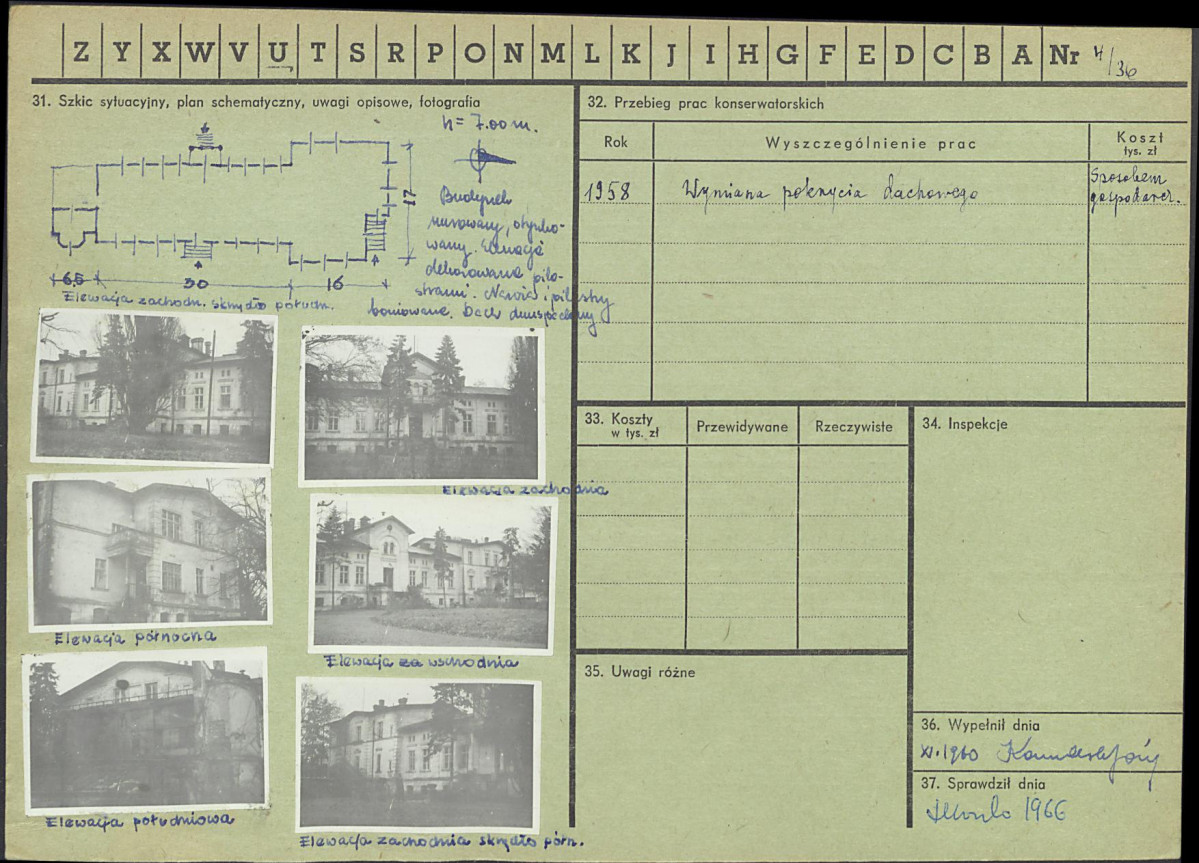 Z Y X W V U T S R P O N M L K J I H G F E D C B A Nr 4/36
31. Szkic sytuacyjny, plan schematyczny, uwagi opisowe, fotografia
h = 7.00 m.
17
6,5 30 16
Budynek
murowany, otynko-
wany. Elewacja
dekorowana pila-
strami. Naroża i pilastry
boniowane. Dach dwuspadowy
Elewacja zachodn. skrzydło połudn.
Elewacja zachodnia
Elewacja północna
Elewacja za wschodnia
Elewacja południowa
Elewacja zachodnia skrzydło półn.
32. Przebieg prac konserwatorskich
Rok Wyszczególnienie prac Koszt
tys. zł
1958 Wymiana pokrycia dachowego Sposobem
gospodarcz.
33. Koszty
w tys. zł
Przewidywane Rzeczywiste
34. Inspekcje
35. Uwagi różne
36. Wypełnił dnia
XI.1960
37. Sprawdził dnia
1966